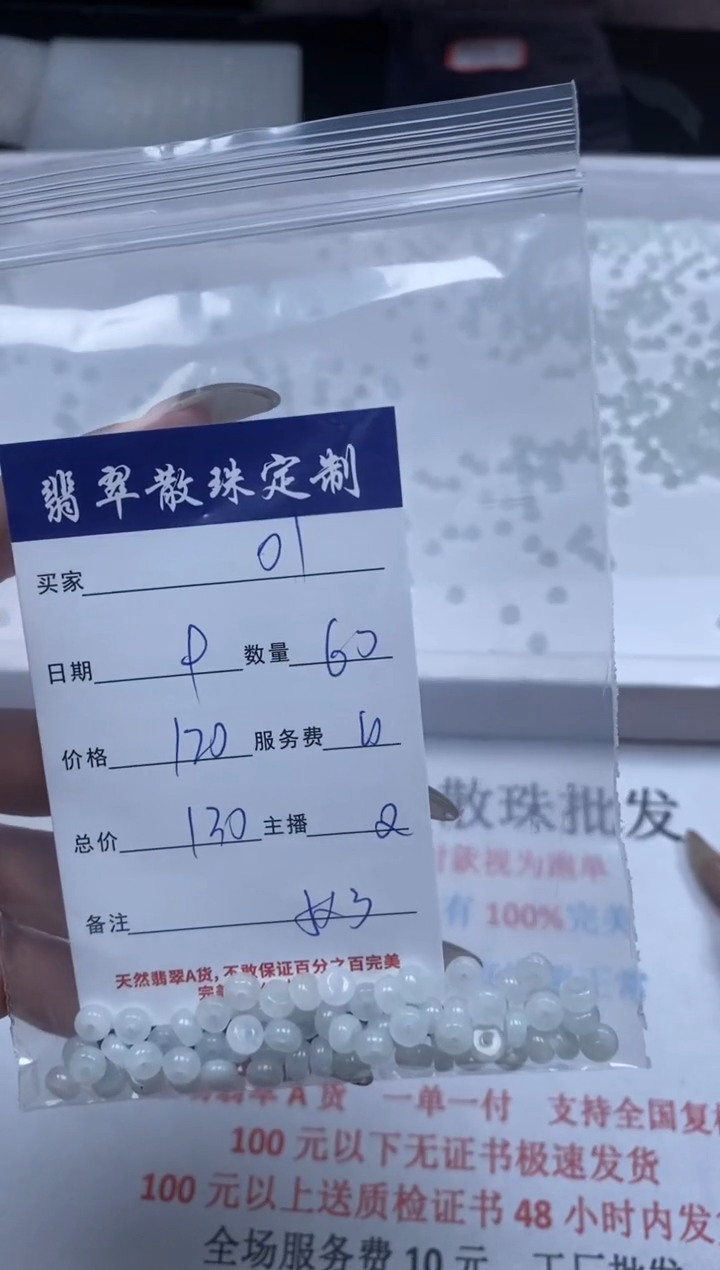 翡翠散珠定制
买家 01
日期 9 数量 60
价格 120 服务费 10
总价 130 主播 2
备注
天然翡翠A货，不敢保证百分之百完美
散珠批发
付款视为跑单
有 100%完美
翡翠A货 一单一付 支持全国复检
100元以下无证书极速发货
100元以上送质检证书48小时内发货
全场服务费10元 工厂批发